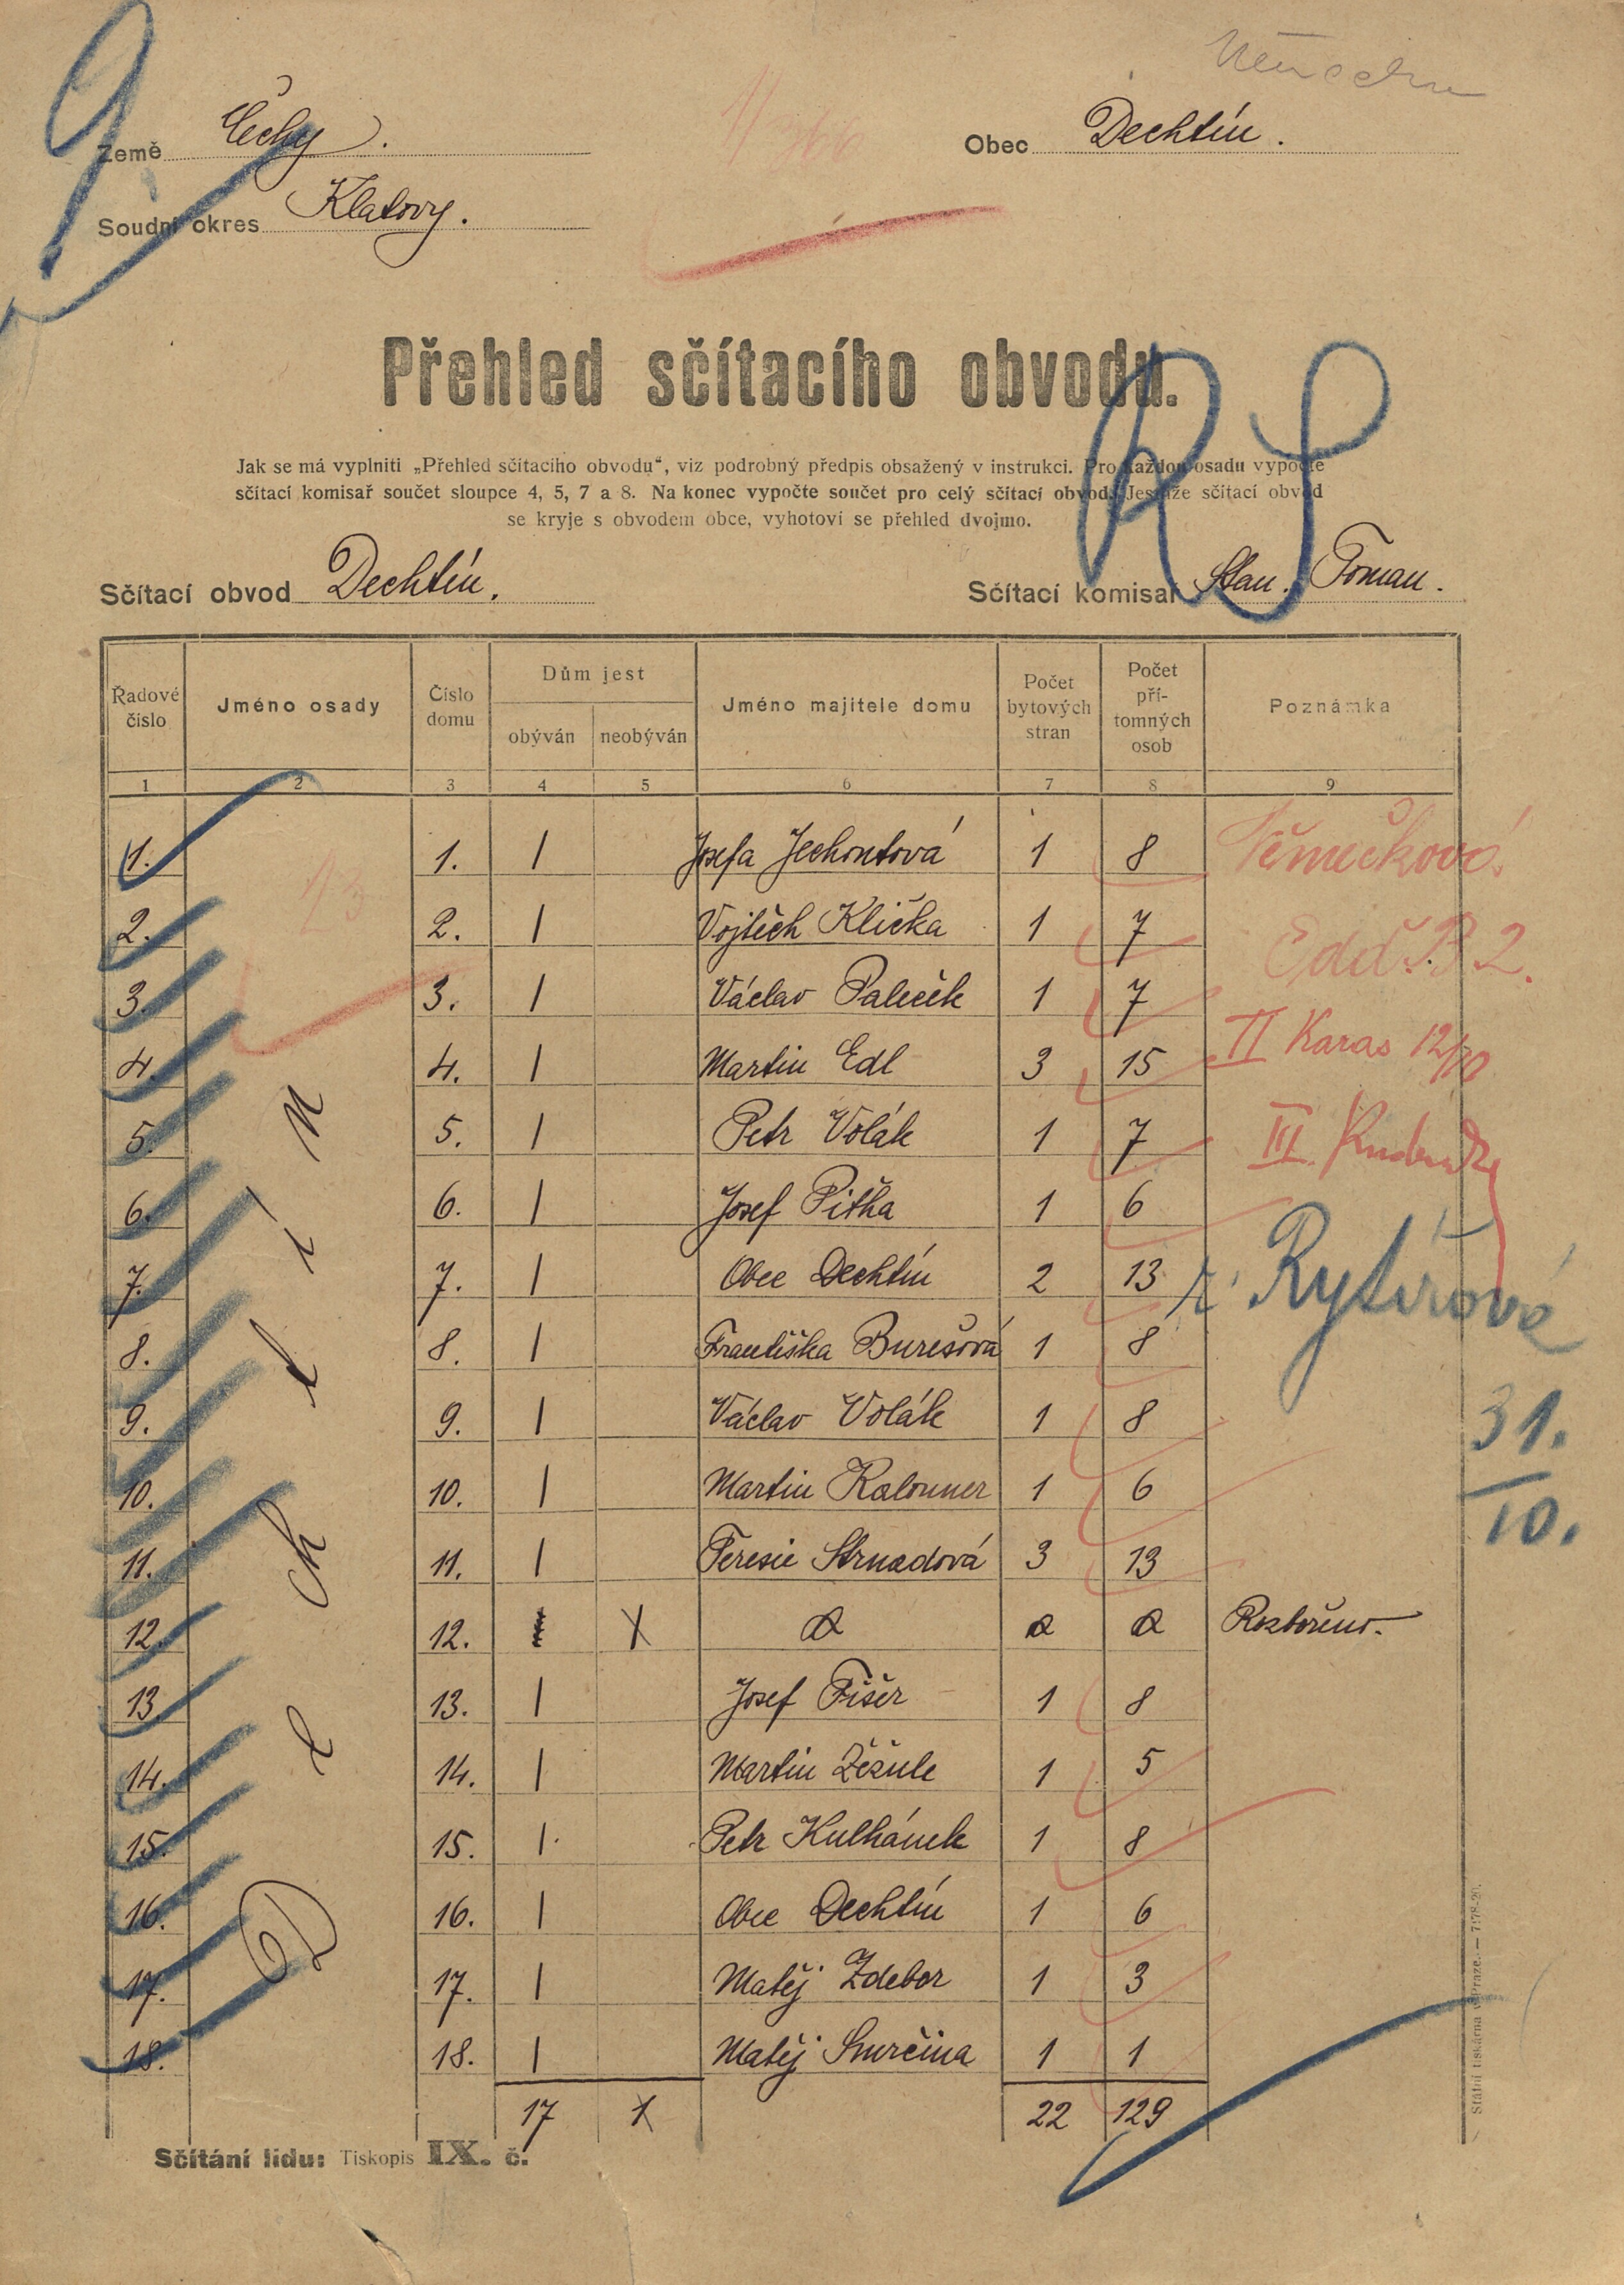 Země Čechy. Obec Dechtín.
Soudní okres Klatovy.
Přehled sčítacího obvodu.
Jak se má vyplniti „Přehled sčítacího obvodu“, viz podrobný předpis obsažený v instrukci. Pro každou osadu vypočte
sčítací komisař součet sloupce 4, 5, 7 a 8. Na konec vypočte součet pro celý sčítací obvod. Jestliže sčítací obvod
se kryje s obvodem obce, vyhotoví se přehled dvojmo.
Sčítací obvod Dechtín. Sčítací komisař Stan. Toman.
Řadové číslo Jméno osady Číslo domu Dům jest obýván neobýván Jméno majitele domu Počet bytových stran Počet pří-tomných osob Poznámka
1 2 3 4 5 6 7 8 9
Dechtín
1. 1. 1 Josefa Jechontová 1 8 Němečková
2. 2. 1 Vojtěch Klička 1 7
3. 3. 1 Václav Paleček 1 7
4. 4. 1 Martin Edl 3 15 II Karas 12/10
5. 5. 1 Petr Volák 1 7 III.
6. 6. 1 Josef Pitha 1 6
7. 7. 1 Obec Dechtín 2 13 Rytířová
8. 8. 1 Františka Burešová 1 8
9. 9. 1 Václav Volák 1 8 31.
10. 10. 1 Martin Kalonner 1 6 10.
11. 11. 1 Teresie Strnadová 3 13
12. 12. X Rozbořeno.
13. 13. 1 Josef Fišer 1 8
14. 14. 1 Martin Žežule 1 5
15. 15. 1 Petr Kulhánek 1 8
16. 16. 1 Obec Dechtín 1 6
17. 17. 1 Matěj Zdebor 1 3
18. 18. 1 Matěj Smrčina 1 1
17 1 22 129
Sčítání lidu: Tiskopis IX. č.
Státní tiskárna v Praze. — 7178-20.